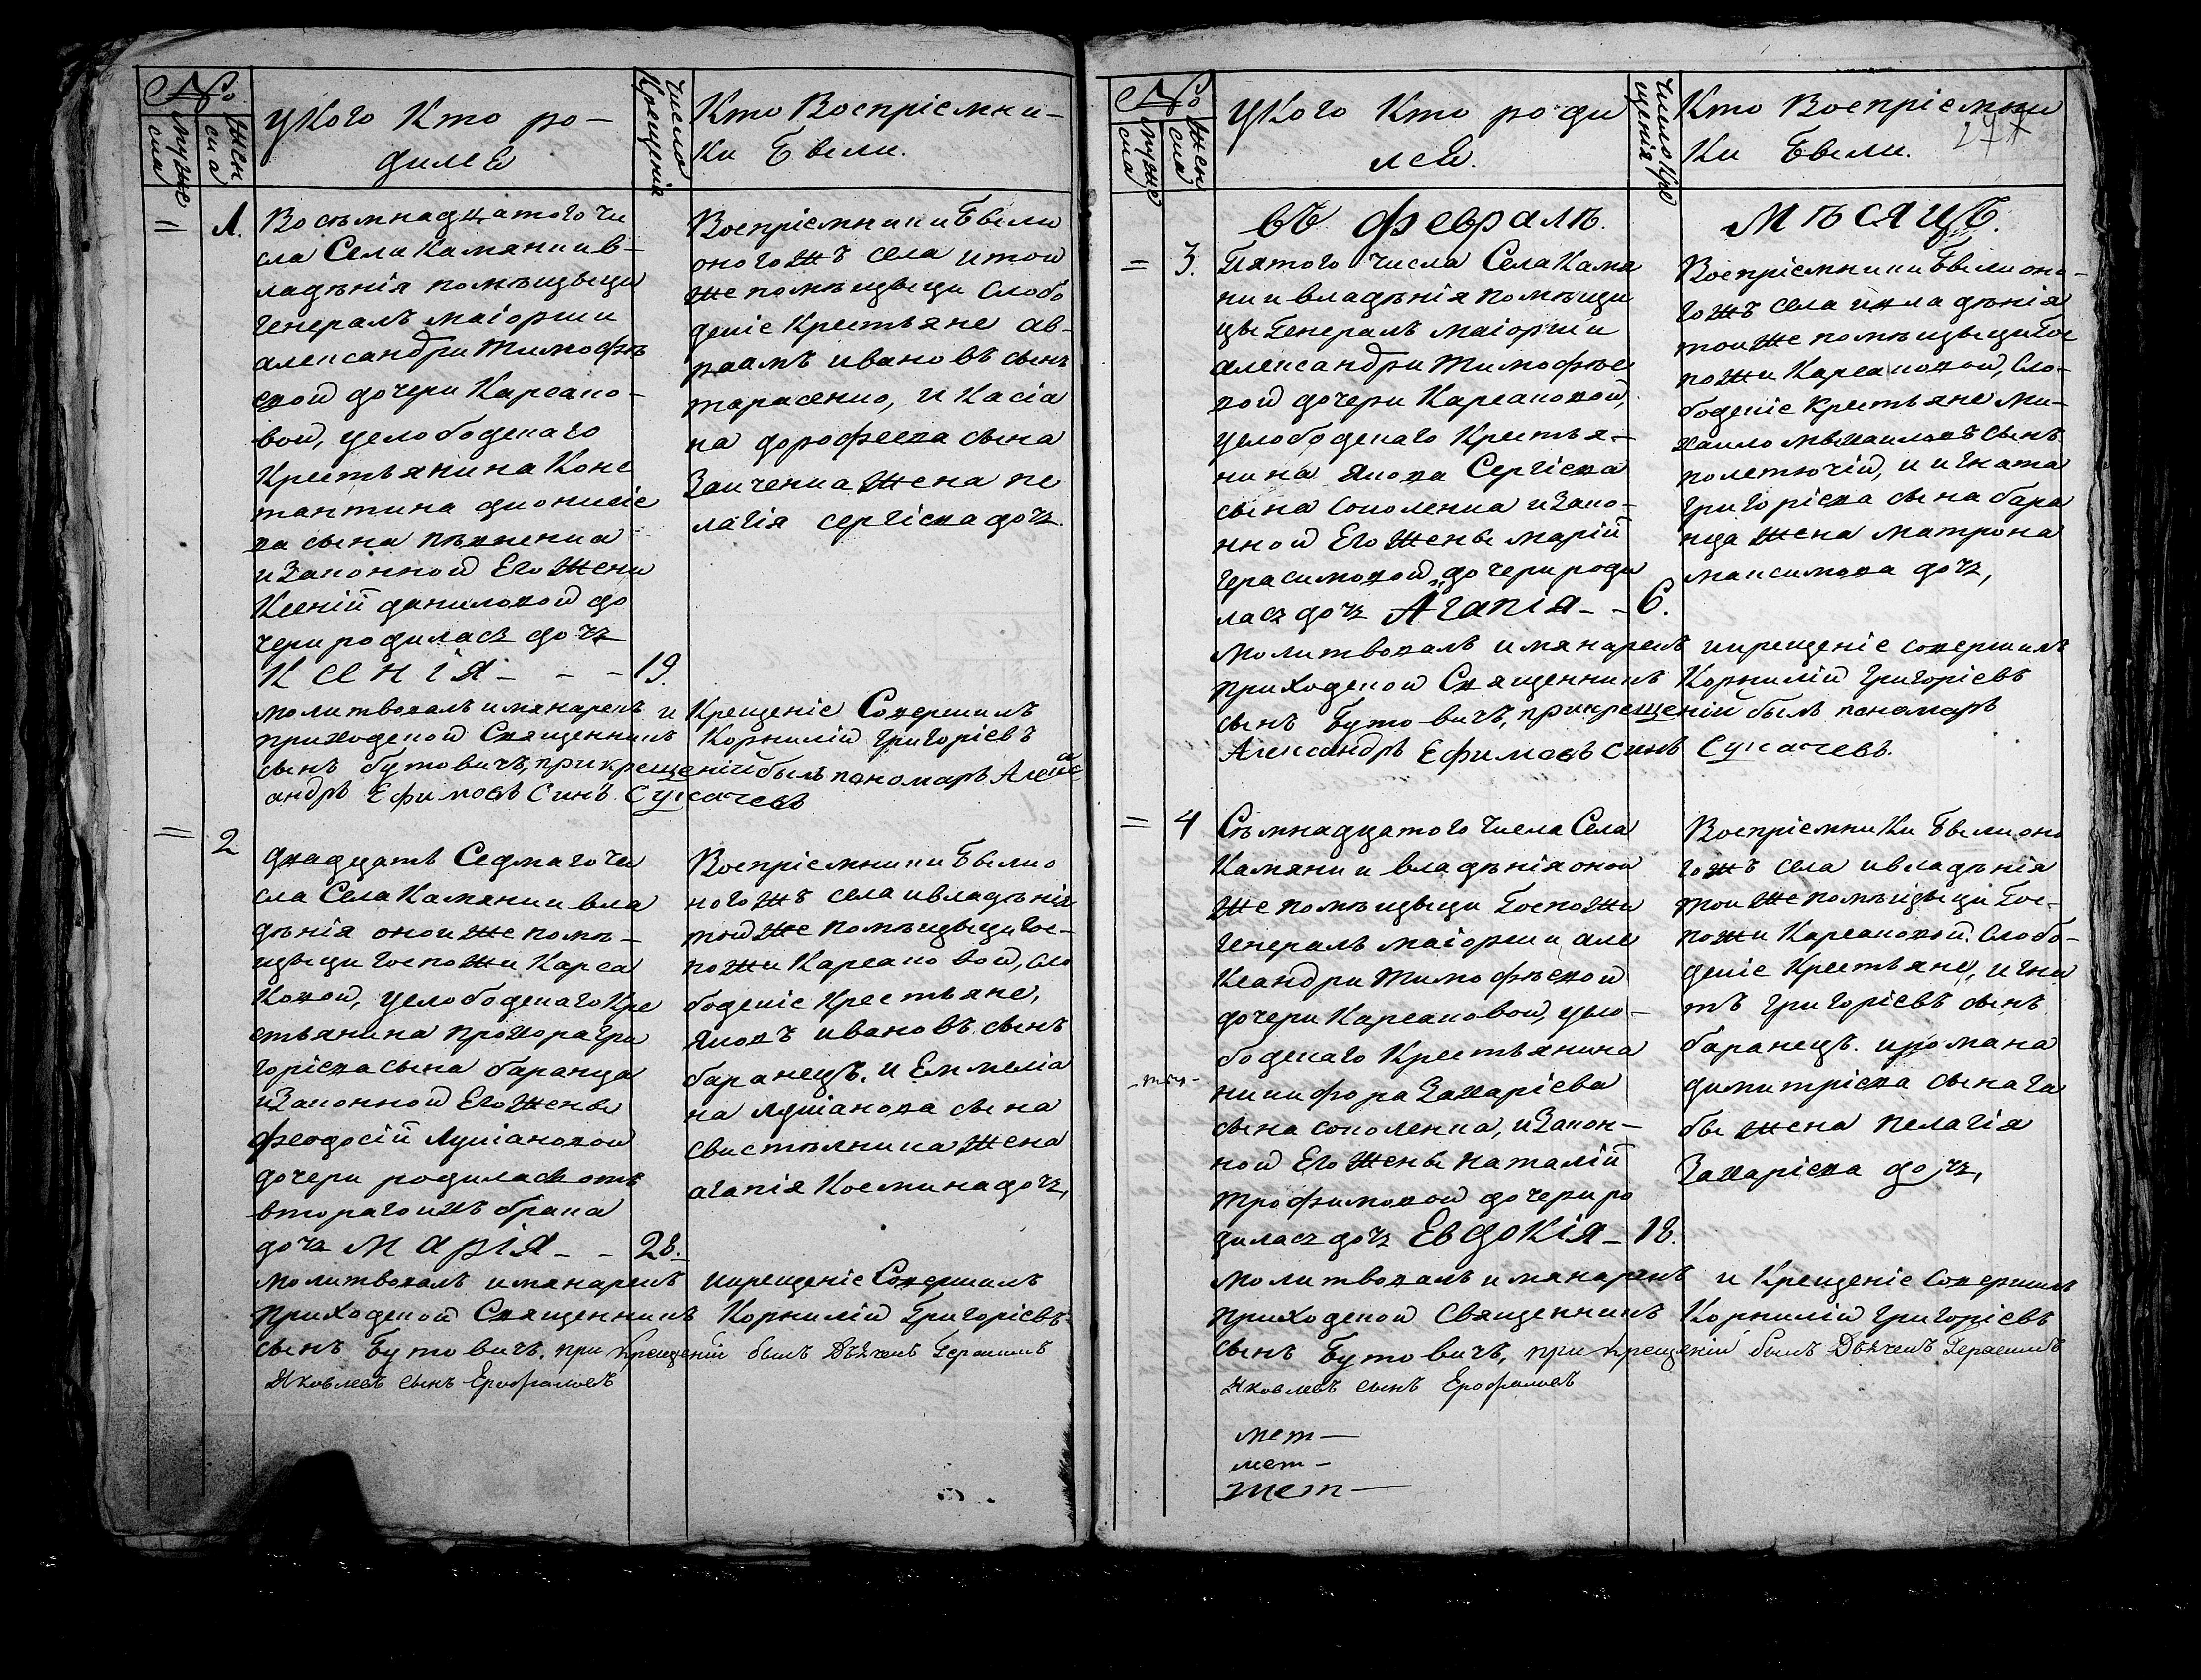 №
муже
ска
жен
ска
у кого кто ро-
дился
число
крещенія
Кто Воспріемни-
ки Были.
= 1.
Восѣмнадцатого чи
сла Села Камянки в-
ладѣнія помѣщыци
Генералъ маіорши
александри Тимофѣе
вой дочери Карсако-
вой, услободскаго
Крестьянина Конс
тантина дионисіе
ва сына
и Законной Его Жени
Ксеніи даниловой до
чери родилась дочь
Ксенія - - - 19.
Воспріемники Были
оногожъ села и той
же помѣщыци Слобо
дскіе Крестьяне ав-
раамъ ивановъ сынъ
тарасенко, и Касіа
на дорофеева сына
Заиченка Жена пе
лагія сергіева дочь.
молитвовалъ имянарекъ и Крещеніе Совершилъ
приходской Священникъ Корнилій Григоріевъ
сынъ бутовичъ, прикрещеніи былъ пономаръ Алекс
андръ Ефимовъ Синъ Сукачевъ
= 2
двадцать Седмаго чи
сла Села Камянки вла
дѣнія оной же помѣ-
щыци госпожи Карса
ковой, услободскаго Кре
стьянина прохора гри
горіева сына баранца
и Законной Его Жены
феодосіи Лукіановой
дочери родилась отъ
втораго ихъ брака
дочь Марія - - 28.
Воспріемники Были о
ногожъ села ивладѣнія
той же помѣщыци Гос-
пожи Карсаковой, сло
бодскіе Крестьяне,
яковъ ивановъ сынъ
баранецъ. и Емиліа
на лукіанова сына
свистѣлника Жена
агапія Космина дочь,
молитвовалъ имянарекъ икрещеніе Совершилъ
приходской Священникъ Корнилій Григоріевъ
сынъ Бутовичъ, при Крещеніи былъ Дьячекъ Герасимъ
Яковлевъ сынъ Ерофаловъ
№
муже
ска
жен
ска
у кого кто роди
лся.
число кре
щенія
Кто Воспріемни
ки Были.
въ февралѣ. мѣсяцѣ.
= 3.
Пятого числа Села Камя
нки владѣнія помѣщи
цы Генералъ маіорши
александри Тимофѣе
вой дочери Карсаковой,
услободскаго Крестья-
нина якова Сергіева
сына соколенка и Зако-
нной Его Жены маріи
герасимовой дочери роди
лась дочь Агапія - - 6.
Воспріемники Были оно-
гожъ села ивладѣнія
той же помѣщыци Гос
пожи Карсаковой, Сло-
бодскіе Крестьяне Ми-
хаило михаиловъ сынъ
полеткочій, и игната
григоріева сына бара
нца Жена матрона
максимова дочь,
молитвовалъ имянарекъ икрещеніе совершилъ
приходской Священникъ Корнилій Григоріевъ
сынъ Бутовичъ, прикрещеніи былъ пономаръ
Александръ Ефимовъ Синъ Сукачевъ.
= 4
Сѣмнадцатого числа Села
Камянки владѣнія оной
же помѣщыци Госпожи
Генералъ маіорши але
ксандри Тимофѣевой
дочери Карсаковой, усло-
бодскаго Крестьянина
никифора Захаріева
сына соколенка, и Закон-
ной Его Жены наталіи
трофимовой дочери ро
дилась дочь Евдокія - 18.
Воспріемники Были оно
гожъ села ивладѣнія
той же помѣщыци Гос-
пожи Карсаковой. Слобо-
дскіе Крестьяне, игна
тъ григоріевъ сынъ
баранецъ. ирмана
димитріева сына га
бы жена пелагія
Захаріева дочь,
молитвовалъ имянарекъ и Крещеніе Совершилъ
приходской священникъ Корнилій Григоріевъ
сынъ Бутовичъ, при Крещеніи былъ Дьячекъ Герасимъ
Яковлевъ сынъ Ерофаловъ
мет-
мет-
мет-